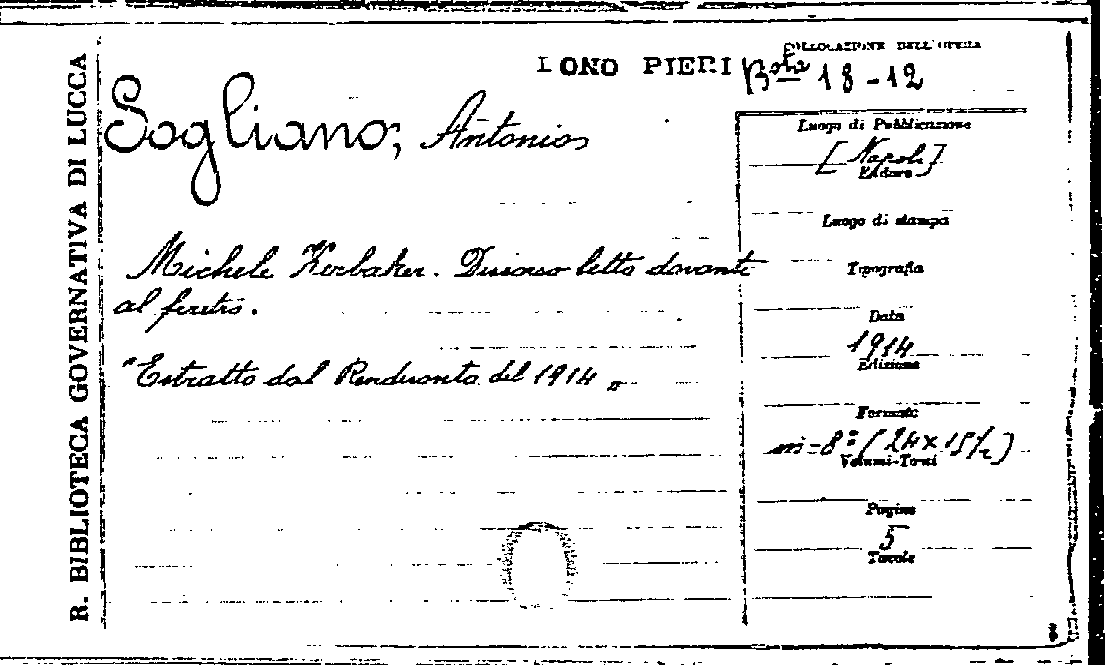 R. BIBLIOTECA GOVERNATIVA DI LUCCA
COLLOCAZIONE DELL'OPERA
DONO PIERI
Bta 18-12
Sogliano, Antonio
Michele Kerbaker. Discorso letto davanti
al feretro.
"Estratto dal Rendiconto del 1914"
Luogo di Pubblicazione
[Napoli]
Editore
Luogo di stampa
Tipografia
Data
1914
Edizione
Formato
in-8° (24x15½)
Volumi-Tomi
Pagine
5
Tavole